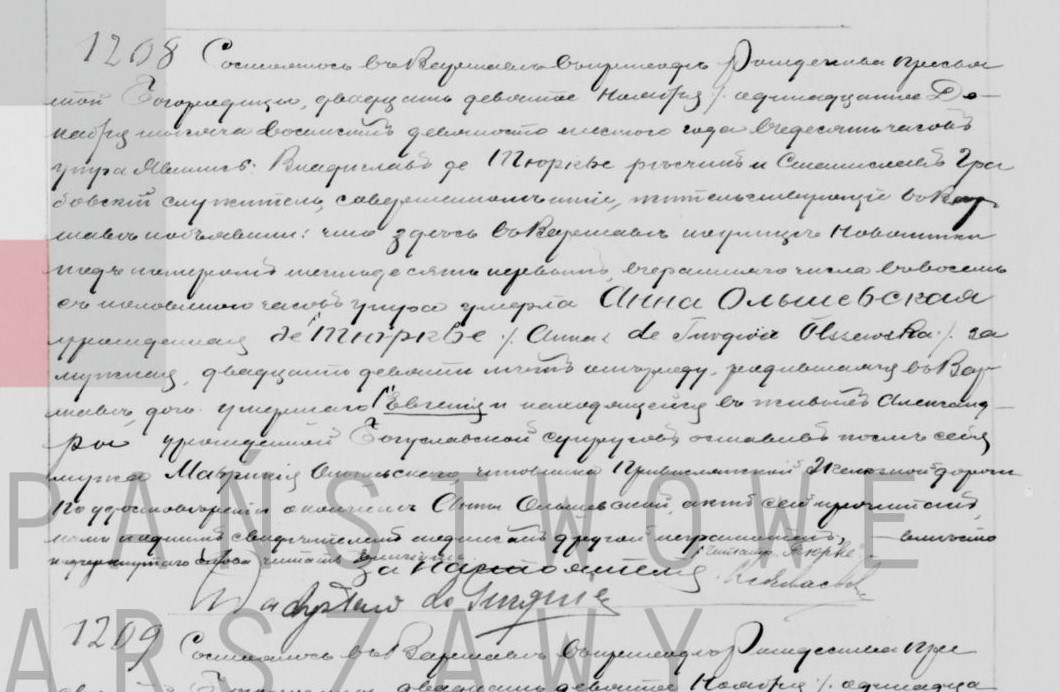 1208 Состоялось въ Варшавѣ въ приходѣ Рождества Пресвя
той Богородицы, двадцать девятое Ноября /: одиннадцатое Де-
кабря тысяча восемьсотъ девяносто шестого года въ десять часовъ
утра Явились: Владиславъ де Тюркье и Станиславъ Гра
бовскій служитель, совершеннолѣтніе, жительствующіе въ Вар
шавѣ и объявили: что здѣсь въ Варшавѣ
подъ номеромъ шестьдесятъ первымъ, вчерашняго числа въ восемь
съ половиною часовъ утра умерла Анна Ольшевская
урожденная де Тюркье /: Anna de Turquie Olszewska :/ за
мужняя, двадцати девяти лѣтъ отъ роду, родившаяся въ Вар-
шавѣ, дочь умершаго Евгенія и находящейся въ живыхъ Александ-
ры урожденной Богуславской супруговъ, оставивъ послѣ себя
мужа Маврикія Ольшевскаго чиновника Привислянской Желѣзной дороги
По удостовѣреніи о кончинѣ Анны Ольшевской, актъ сей прочитанъ,
нами и однимъ свидѣтелемъ подписанъ другой неграмотенъ, вмѣсто
зачеркнутаго слова читать
За Настоятеля
Władysław de Turquie
PAŃSTWOWE
1209 Состоялось въ Варшавѣ въ приходѣ Рождества Пре
ARSZAWY
Богородицы, двадцать девятое Ноября /: одиннадца